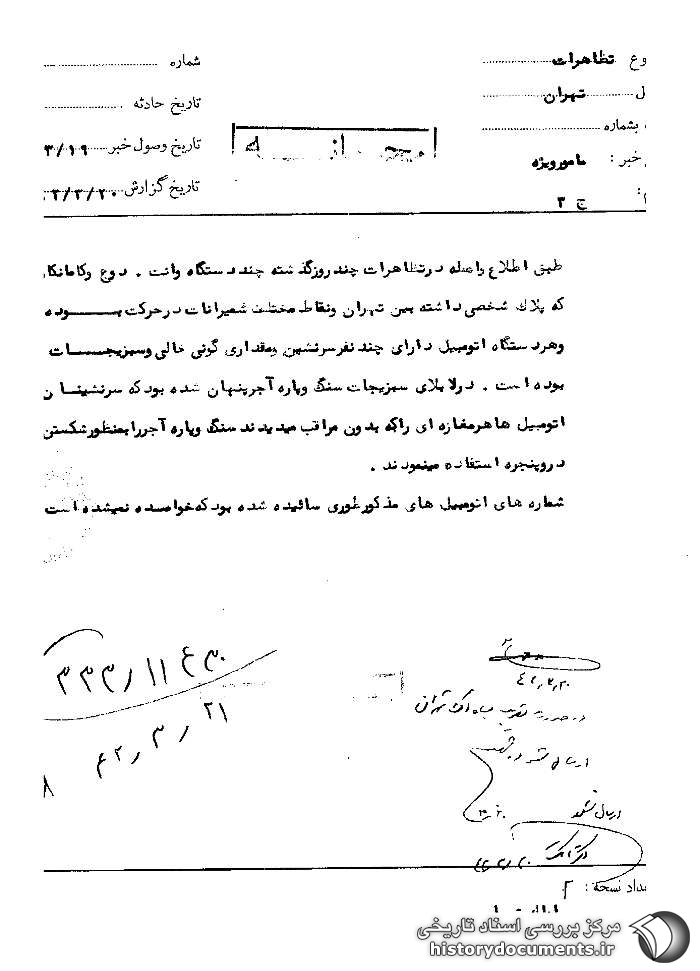 وع تظاهرات
شماره
ل تهران
تاریخ حادثه
بشماره
محرمانه
تاریخ وصول خبر ۳/۱۹
خبر : مامور ویژه
تاریخ گزارش ۲/۳/۲۰
: ج ۳
طبق اطلاع واصله در تظاهرات چند روز گذشته چند دستگاه وانت . دوج و کامانکا
که پلاک شخصی داشته بین تهران و نقاط مختلف شمیرانات در حرکت بوده
و هر دستگاه اتومبیل دارای چند نفر سرنشین و مقداری گونی خالی و سبزیجات
بوده است . در لابلای سبزیجات سنگ و پاره آجر پنهان شده بود که سرنشینان
اتومبیل ها هر مغازه ای را که بدون مراقب میدیدند سنگ و پاره آجر را بمنظور شکستن
در و پنجره استفاده مینمودند .
شماره های اتومبیل های مذکور طوری سائیده شده بود که خوانده نمیشده است
۳۳۳/۱۱۴۳۰
۲۱/۳/۴۲
۸
در صورت تصویب ساواک تهران
ارسال نشود
داد نسخه : ۲
مرکز بررسی اسناد تاریخی
historydocuments.ir